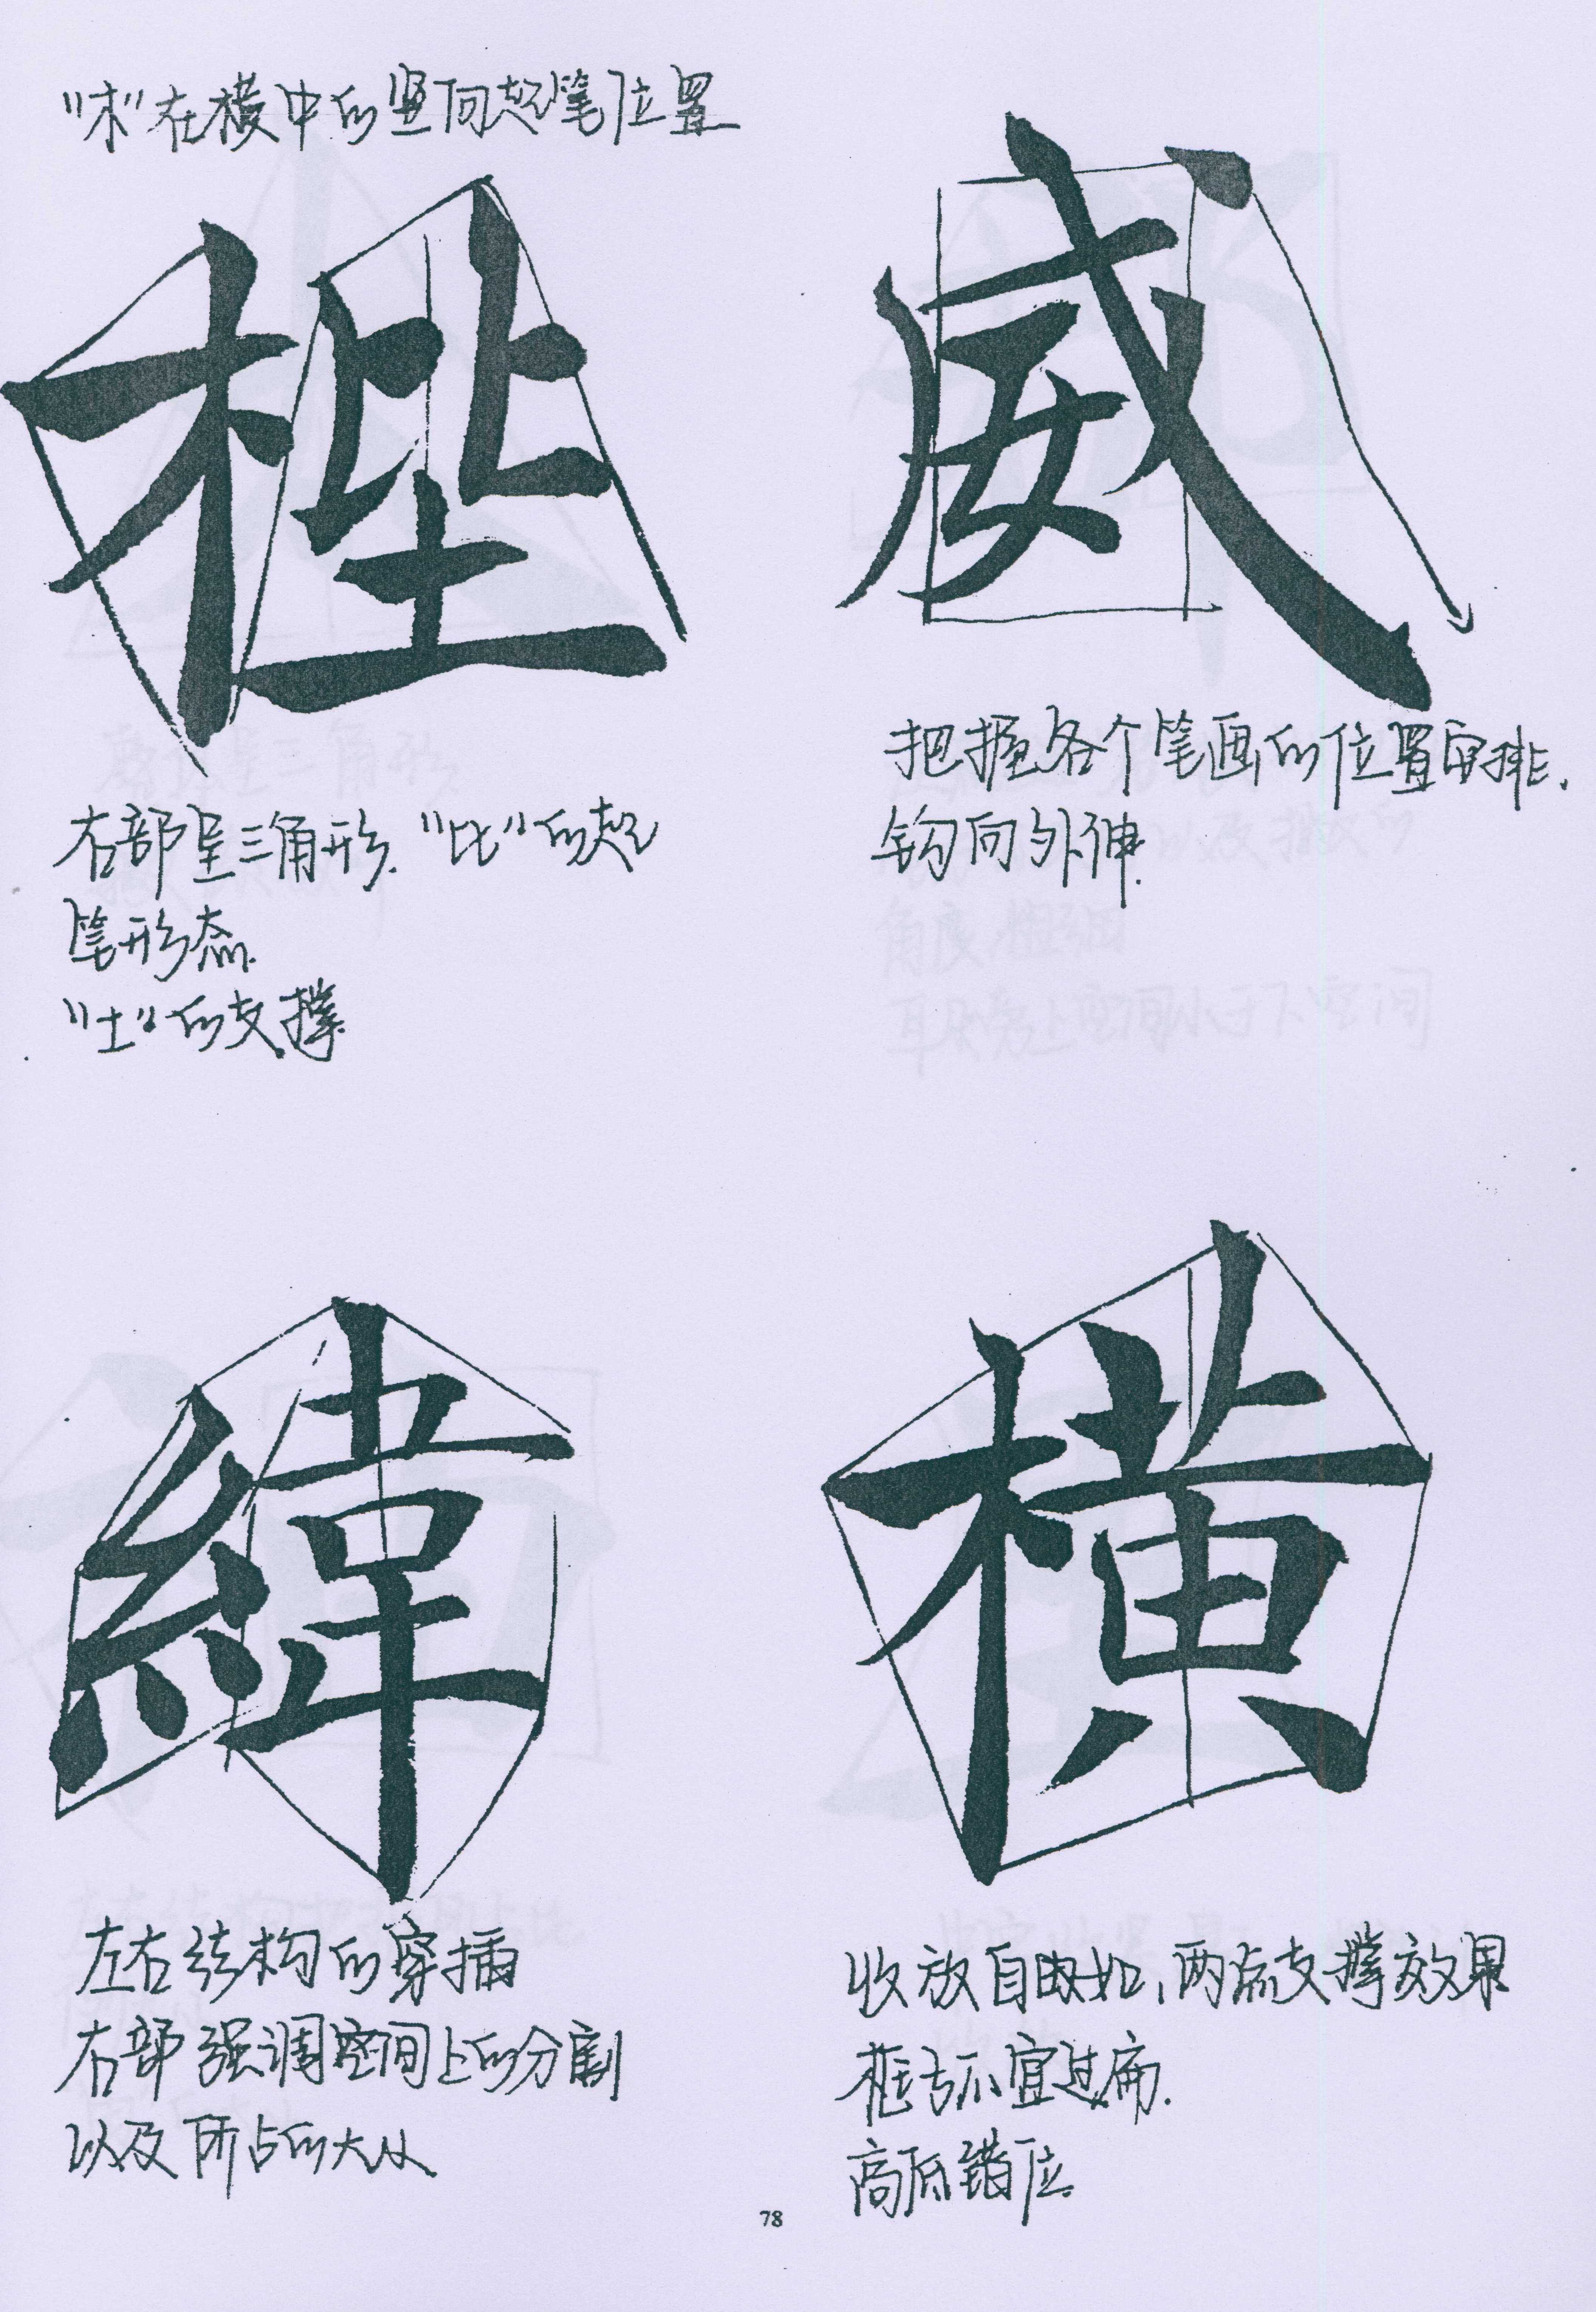 "木"在横中的竖向起笔位置
梐
右部呈三角形."比"的起
笔形态.
"土"的支撑.
威
把握各个笔画的位置安排.
钩向外伸.
緯
左右结构的穿插
右部强调空间上的分割
以及所占的大小
横
收放自由如,两点支撑效果
框与不宜过扁.
高低错位.
78